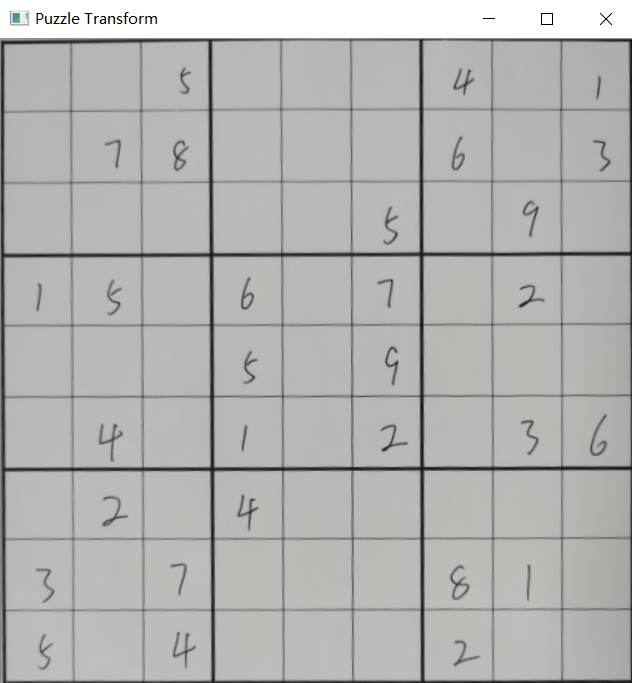 Puzzle Transform
5 4 1
7 8 6 3
5 9
1 5 6 7 2
5 9
4 1 2 3 6
2 4
3 7 8 1
5 4 2